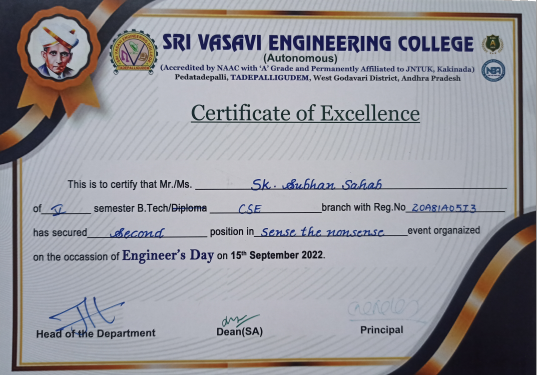 SRI VASAVI ENGINEERING COLLEGE
(Autonomous)
(Accredited by NAAC with 'A' Grade and Permanently Affiliated to JNTUK, Kakinada)
Pedatadepalli, TADEPALLIGUDEM, West Godavari District, Andhra Pradesh
NBA
Certificate of Excellence
This is to certify that Mr./Ms. Sk. Subhan Sahab
of V semester B.Tech/Diploma CSE branch with Reg.No 20A81A05I3
has secured Second position in Sense the nonsense event orgnaized
on the occassion of Engineer's Day on 15th September 2022.
Head of the Department
Dean(SA)
Principal